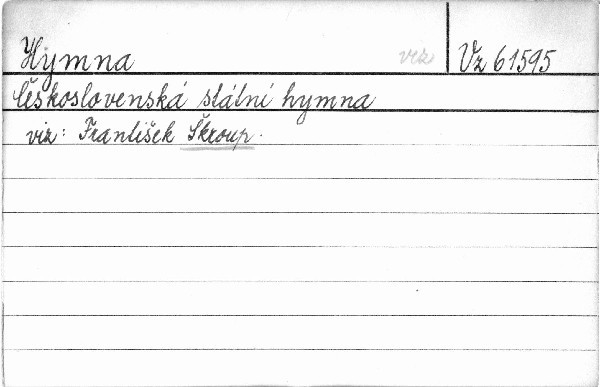 Hymna viz Vz 61595
Československá státní hymna
viz: František Škroup.